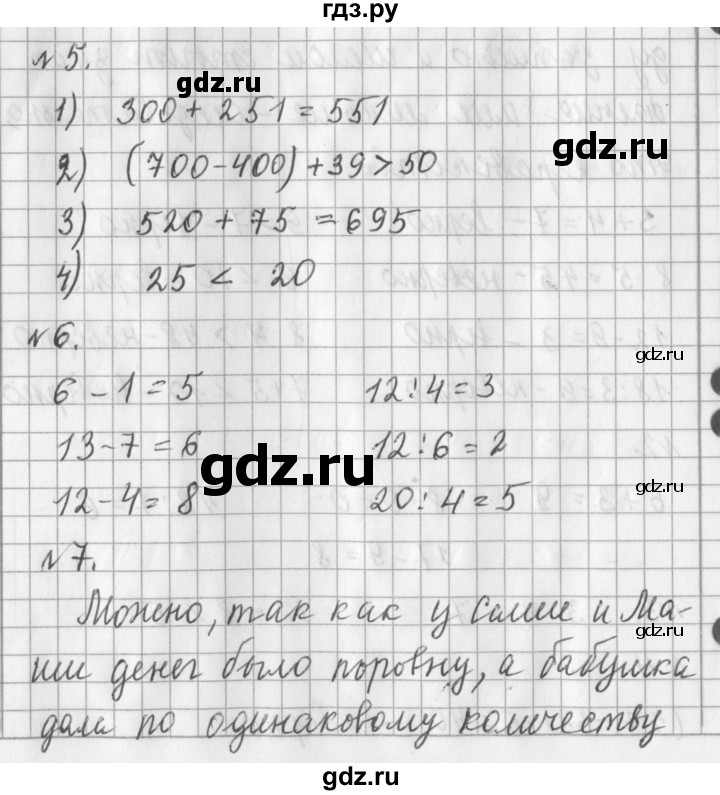 гдз.ру
№5.
gdz.ru
1) 300 + 251 = 551
gdz.ru
2) (700 - 400) + 39 > 50
3) 520 + 75 = 695
4) 25 < 20
№6.
gdz.ru
6 - 1 = 5 12 : 4 = 3
13 - 7 = 6 12 : 6 = 2
gdz.ru
12 - 4 = 8 20 : 4 = 5
gdz.ru
№7.
Можно, так как у Саши и Ма-
gdz.ru
ши денег было поровну, а бабушка
дала по одинаковому количеству
gdz.ru